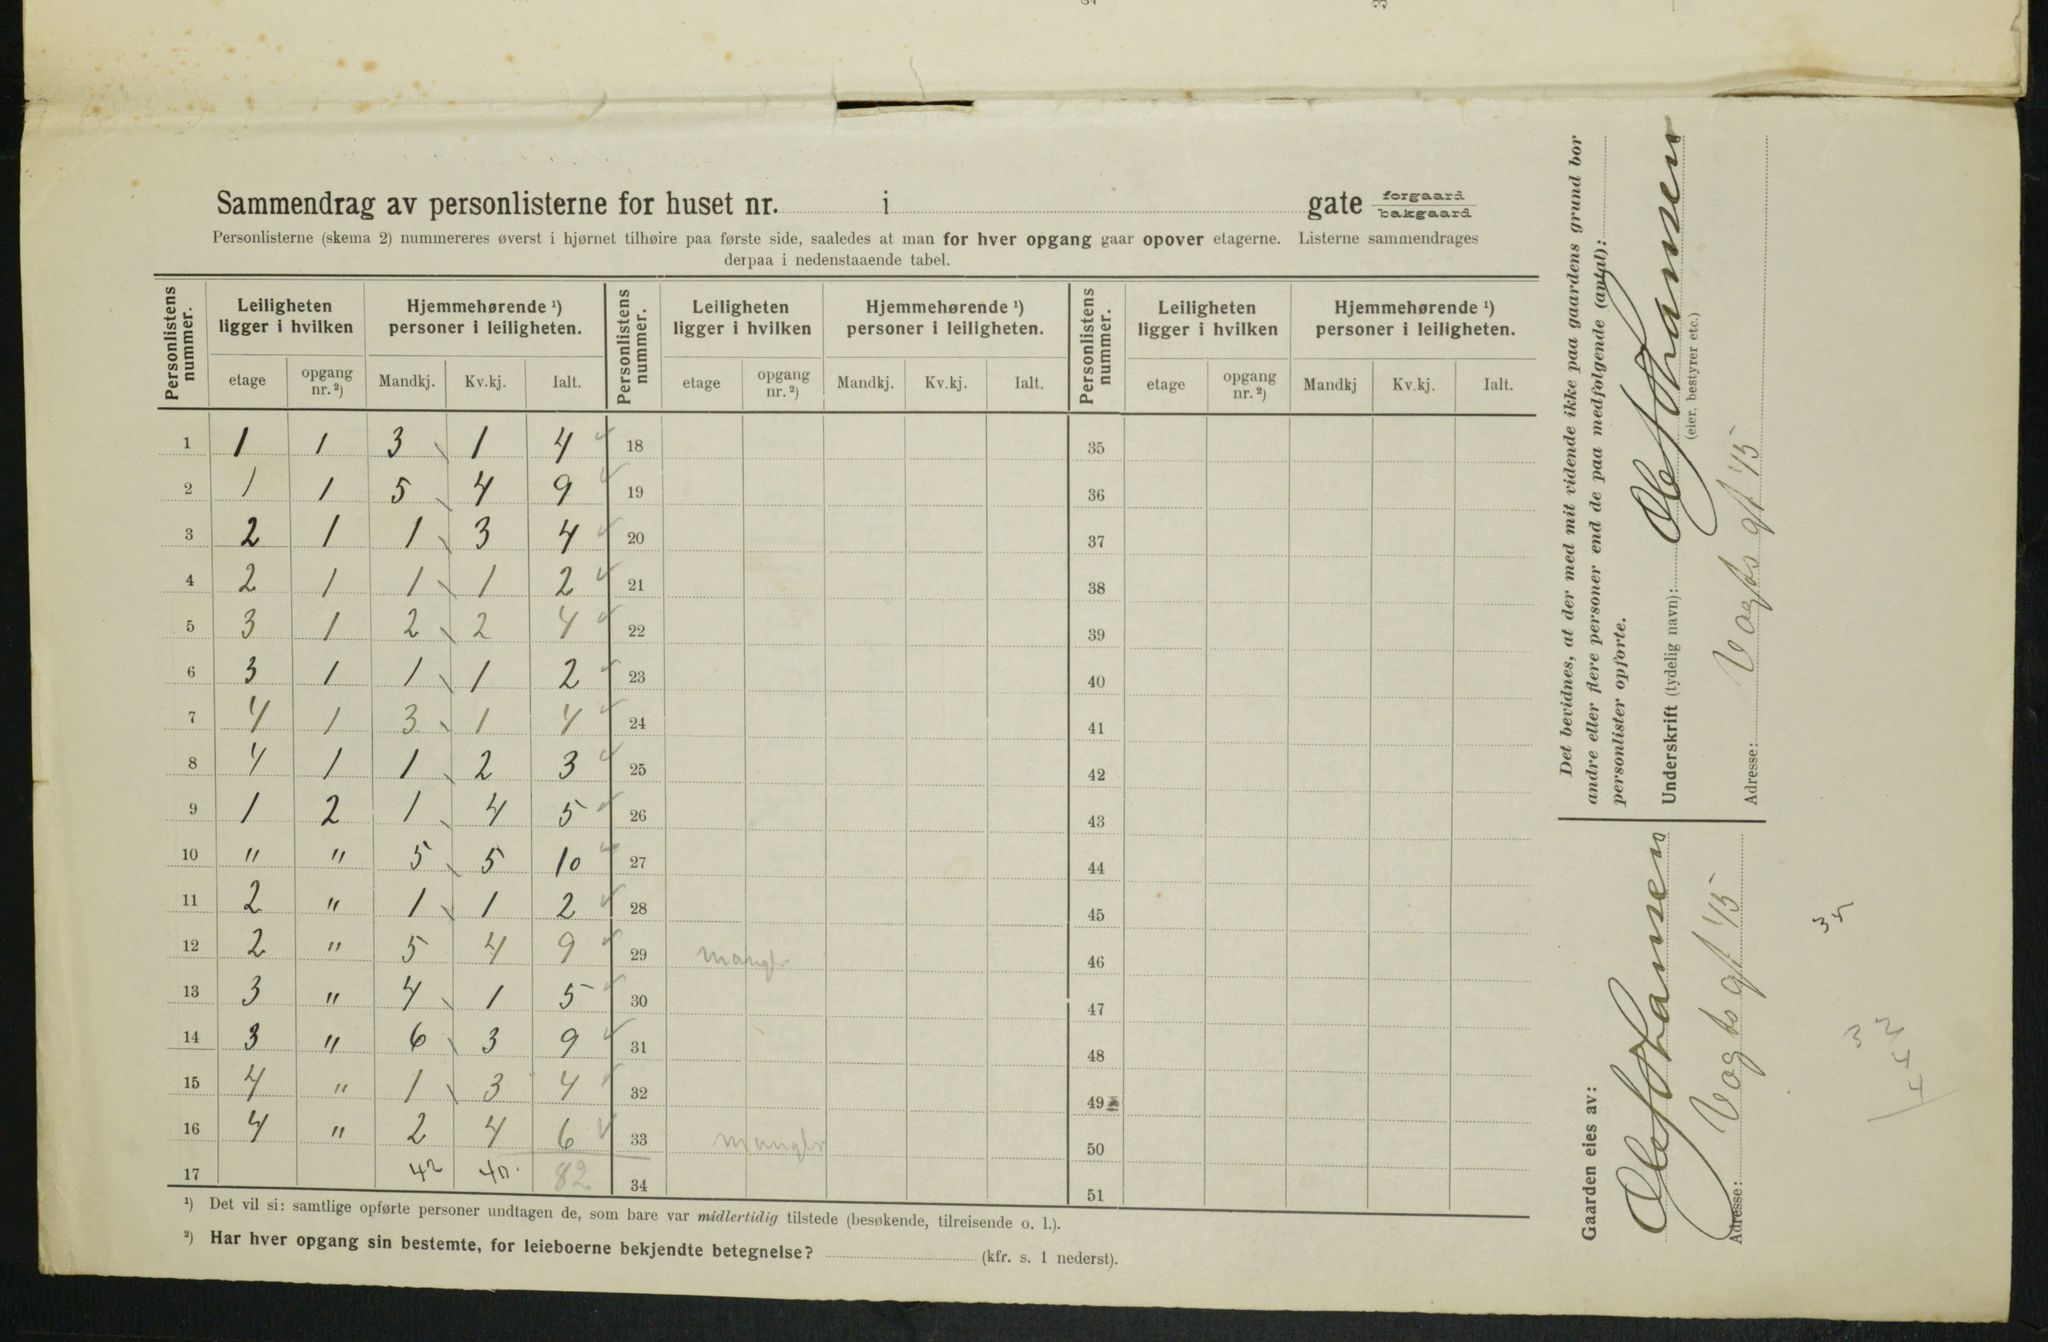 Sammendrag av personlisterne for huset nr. i gate forgaard bakgaard
Personlisterne (skema 2) nummereres øverst i hjørnet tilhøire paa første side, saaledes at man for hver opgang gaar opover etagerne. Listerne sammendrages
derpaa i nedenstaaende tabel.
Personlistens nummer. Leiligheten ligger i hvilken Hjemmehørende ¹) personer i leiligheten. Personlistens nummer. Leiligheten ligger i hvilken Hjemmehørende ¹) personer i leiligheten. Personlistens nummer. Leiligheten ligger i hvilken Hjemmehørende ¹) personer i leiligheten.
etage opgang nr. ²) Mandkj. Kv.kj. Ialt. etage opgang nr. ²) Mandkj. Kv.kj. Ialt. etage opgang nr. ²) Mandkj Kv.kj. Ialt.
1 1 1 3 1 4 18 35
2 1 1 5 4 9 19 36
3 2 1 1 3 4 20 37
4 2 1 1 1 2 21 38
5 3 1 2 2 4 22 39
6 3 1 1 1 2 23 40
7 4 1 3 1 4 24 41
8 4 1 1 2 3 25 42
9 1 2 1 4 5 26 43
10 " " 5 5 10 27 44
11 2 " 1 1 2 28 45
12 2 " 5 4 9 29 mangler 46
13 3 " 4 1 5 30 47
14 3 " 6 3 9 31 48
15 4 " 1 3 4 32 49
16 4 " 2 4 6 33 mangler 50
17 42 40. 82 34 51
¹) Det vil si: samtlige opførte personer undtagen de, som bare var midlertidig tilstede (besøkende, tilreisende o. l.).
²) Har hver opgang sin bestemte, for leieboerne bekjendte betegnelse? (kfr. s. 1 nederst).
Det bevidnes, at der med mit vidende ikke paa gaardens grund bor
andre eller flere personer end de paa medfølgende (antal):
personlister opførte.
Underskrift (tydelig navn): Ole Johansen
(eier, bestyrer etc.)
Adresse: Vogts gt 45
Gaarden eies av:
Ole Johansen
Adresse: Vogts gt 45
35
32
4
4